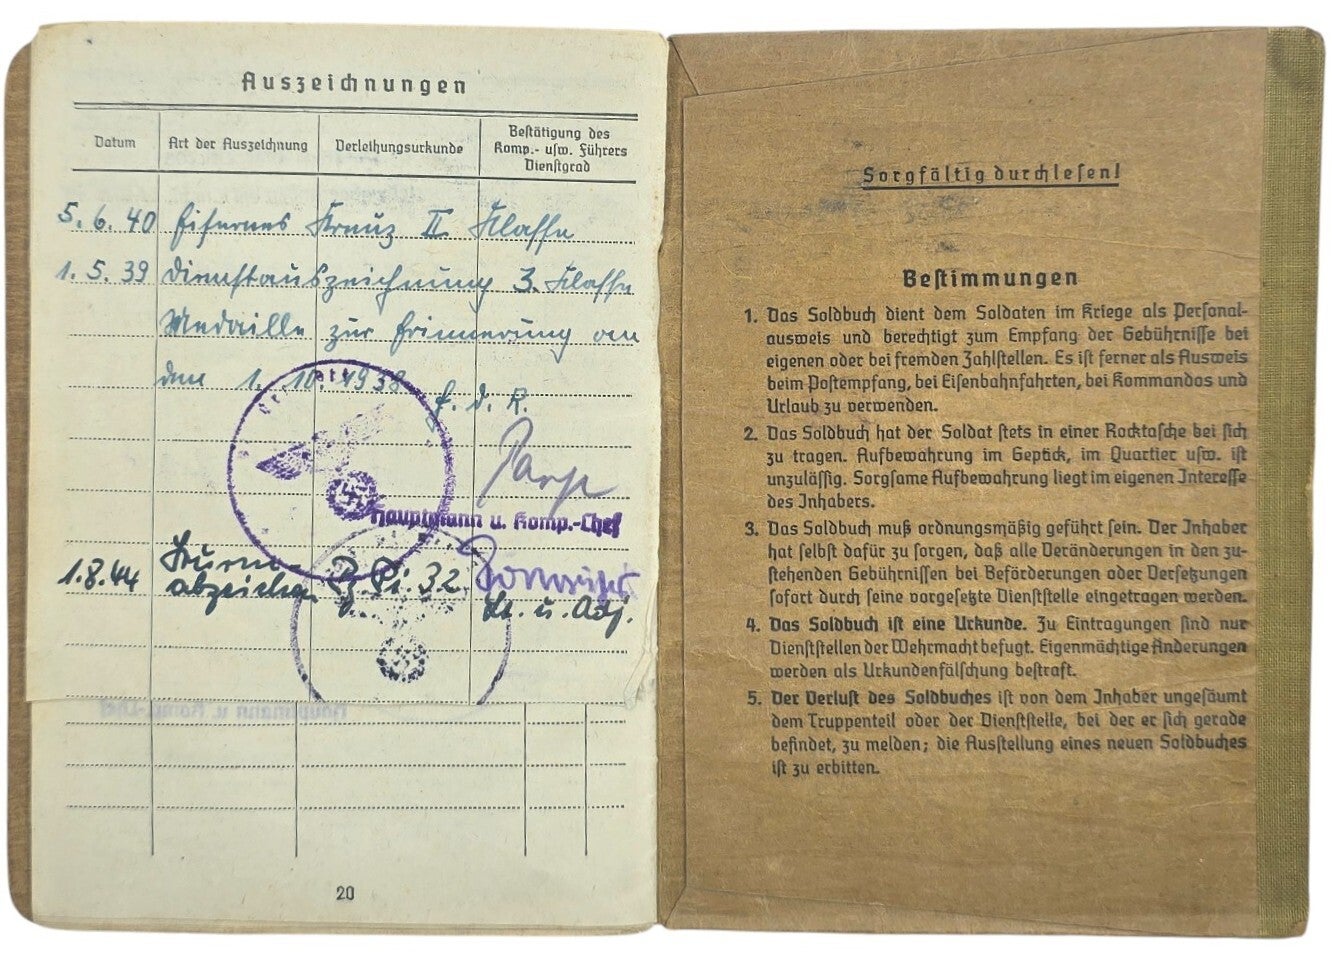 Auszeichnungen
Datum
Art der Auszeichnung
Verleihungsurkunde
Bestätigung des
Komp.- usw. Führers
Dienstgrad
5.6.40 Eisernes Kreuz II. Klasse
1.5.39 Dienstauszeichnung 3. Klasse
Medaille zur Erinnerung an
den 1.10.1938 f. d. R.
Hauptmann u. Komp.-Chef
1.8.44 Sturm-
abzeichen Pi. 32
Lt. u. Adj.
Hauptmann u. Komp.-Chef
20
Sorgfältig durchlesen!
Bestimmungen
1. Das Soldbuch dient dem Soldaten im Kriege als Personal-
ausweis und berechtigt zum Empfang der Gebührnisse bei
eigenen oder bei fremden Zahlstellen. Es ist ferner als Ausweis
beim Postempfang, bei Eisenbahnfahrten, bei Kommandos und
Urlaub zu verwenden.
2. Das Soldbuch hat der Soldat stets in einer Rocktasche bei sich
zu tragen. Aufbewahrung im Gepäck, im Quartier usw. ist
unzulässig. Sorgsame Aufbewahrung liegt im eigenen Interesse
des Inhabers.
3. Das Soldbuch muß ordnungsmäßig geführt sein. Der Inhaber
hat selbst dafür zu sorgen, daß alle Veränderungen in den zu-
stehenden Gebührnissen bei Beförderungen oder Versetzungen
sofort durch seine vorgesetzte Dienststelle eingetragen werden.
4. Das Soldbuch ist eine Urkunde. Zu Eintragungen sind nur
Dienststellen der Wehrmacht befugt. Eigenmächtige Änderungen
werden als Urkundenfälschung bestraft.
5. Der Verlust des Soldbuches ist von dem Inhaber ungesäumt
dem Truppenteil oder der Dienststelle, bei der er sich gerade
befindet, zu melden; die Ausstellung eines neuen Soldbuches
ist zu erbitten.